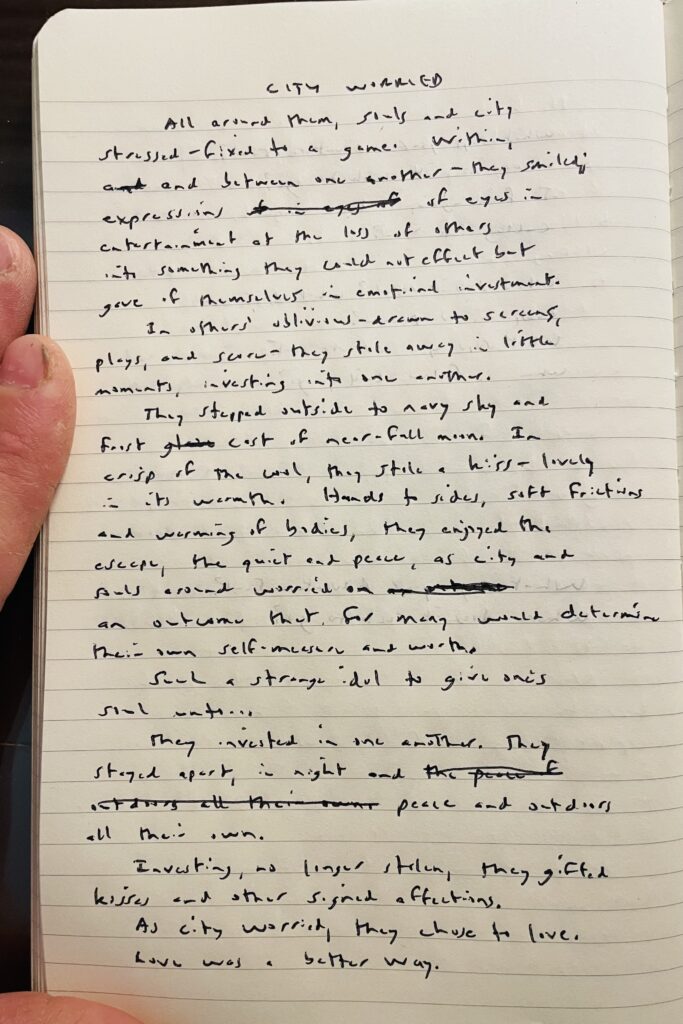 CITY WORRIED
All around them, souls and city
stressed-fixed to a game. Within,
and and between one another - they smiled;
expressions of in eyes of of eyes in
entertainment at the loss of others
into something they could not effect but
gave of themselves in emotional investment.
In others' oblivious-drawn to screens,
plays, and score-they stole away in little
moments, investing into one another.
They stepped outside to navy sky and
frost cast of near-full moon. In
crisp of the cool, they stole a kiss - lovely
in its warmth. Hands to sides, soft frictions
and warming of bodies, they enjoyed the
escape, the quiet and peace, as city and
souls around worried on
an outcome that, for many would determine
their own self-measure and worth.
Such a strange idol to give one's
soul unto...
They invested in one another. They
stayed apart, in night and the peace of
outdoors all their own. peace and outdoors
all their own.
Investing, no longer stolen, they gifted
kisses and other signed affections.
As city worried, they chose to love.
Love was a better way.